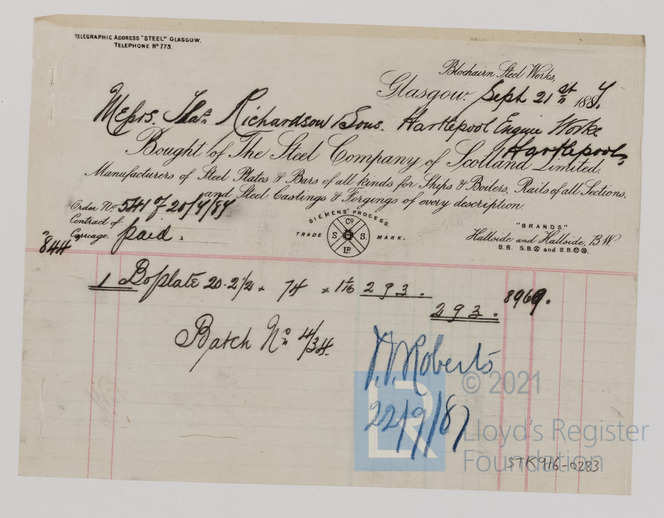 TELEGRAPHIC ADDRESS "STEEL" GLASGOW.
TELEPHONE No 773.
Blochairn Steel Works,
Glasgow. Sept. 21st 1887
Messrs. Thos. Richardson & Sons. Hartlepool Engine Works
Hartlepool.
Bought of The Steel Company of Scotland Limited.
Manufacturers of Steel Plates & Bars of all kinds for Ships & Boilers, Rails of all Sections,
and Steel Castings & Forgings of every description.
Order No 541 of 20/4/87
Contract of
Carriage. paid.
SIEMENS' PROCESS.
TRADE MARK.
Co S S LD
"BRANDS"
Hallside and Hallside, B.W
S.B. S.B. and B.B.
844
1 Bo plate 20-2 1/2 x 74 x 1 1/16 293. 8969.
293.
Batch No 4/34.
Roberts
22/9/87
LR
© 2021
Lloyd's Register
Foundation
STK916-0283